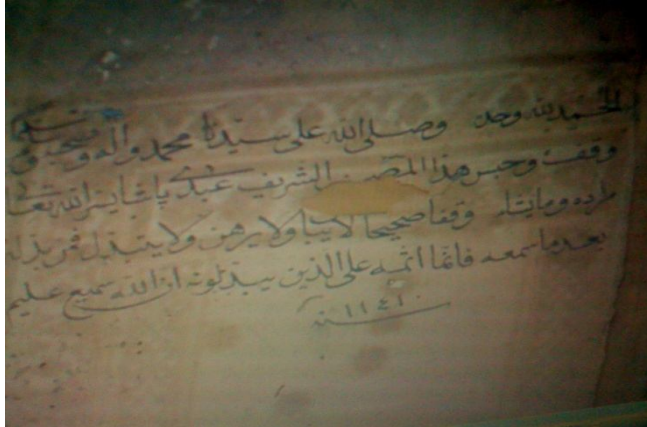 الحمد لله وحده وصلى الله على سيدنا محمد واله وصحبه وسلم
وقف وحبس هذا المصحف الشريف عبدي باشا يسر الله تعالى
مراده وما يشاء وقفا صحيحا لا يباع ولا يرهن ولا يتبدل فمن بدله
بعد ما سمعه فانما اثمه على الذين يبدلونه ان الله سميع عليم
سنة ١١٤١